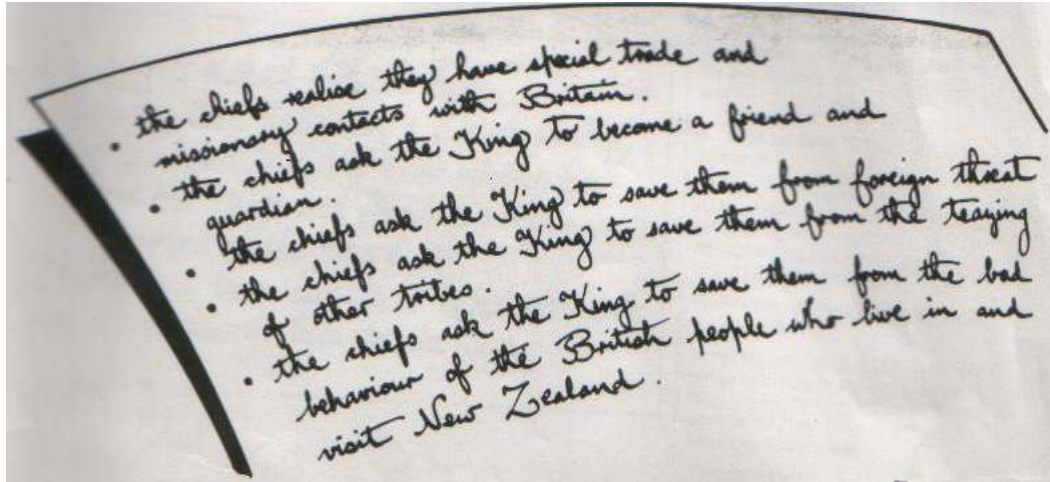 • the chiefs realise they have special trade and
missionary contacts with Britain.
• the chiefs ask the King to become a friend and
guardian.
• the chiefs ask the King to save them from foreign threat
• the chiefs ask the King to save them from the teazing
of other tribes.
• the chiefs ask the King to save them from the bad
behaviour of the British people who live in and
visit New Zealand.